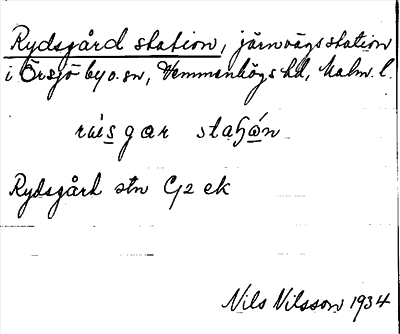 Rydsgård station, järnvägsstation
i Örsjö by o. sn, Vemmenhögs hd, Malm. l.
staɧán
Rydsgård stn G2 ek
Nils Nilsson 1934